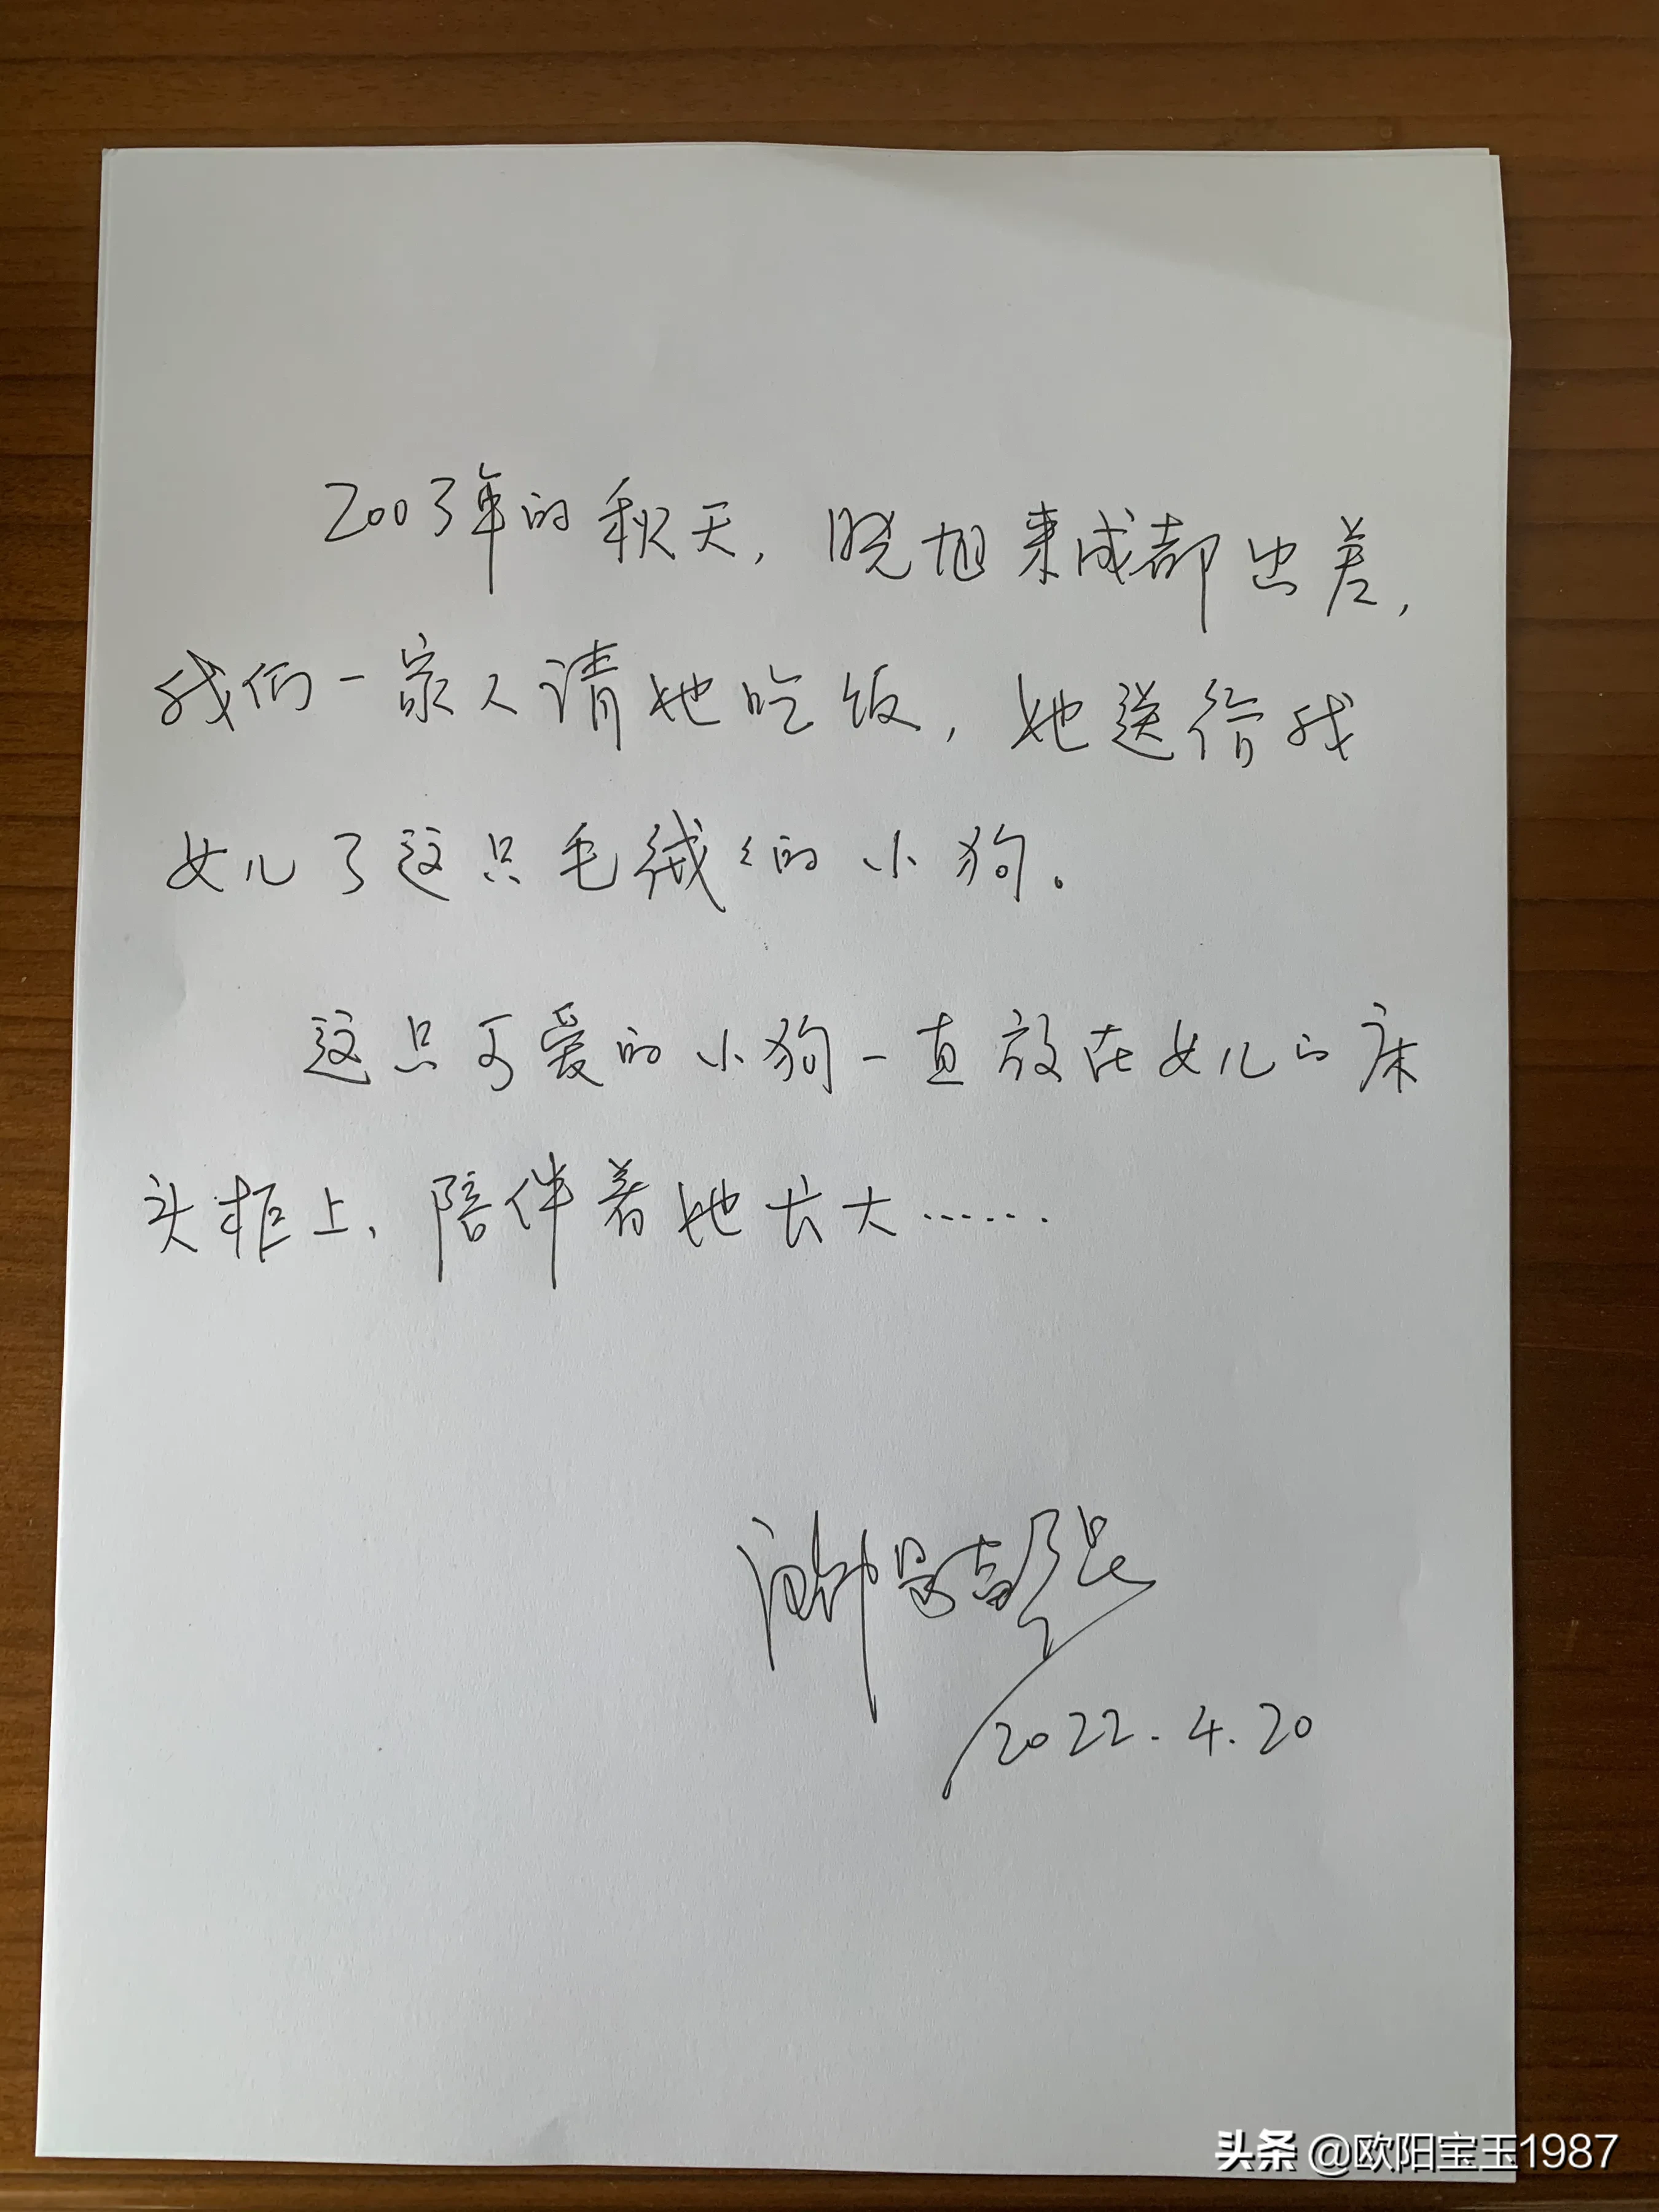 2003年的秋天，晓旭来成都出差，
我们一家人请她吃饭，她送给我
女儿了这只毛绒绒的小狗。
这只可爱的小狗一直放在女儿的床
头柜上、陪伴着她长大……
2022.4.20
头条 @欧阳宝玉1987